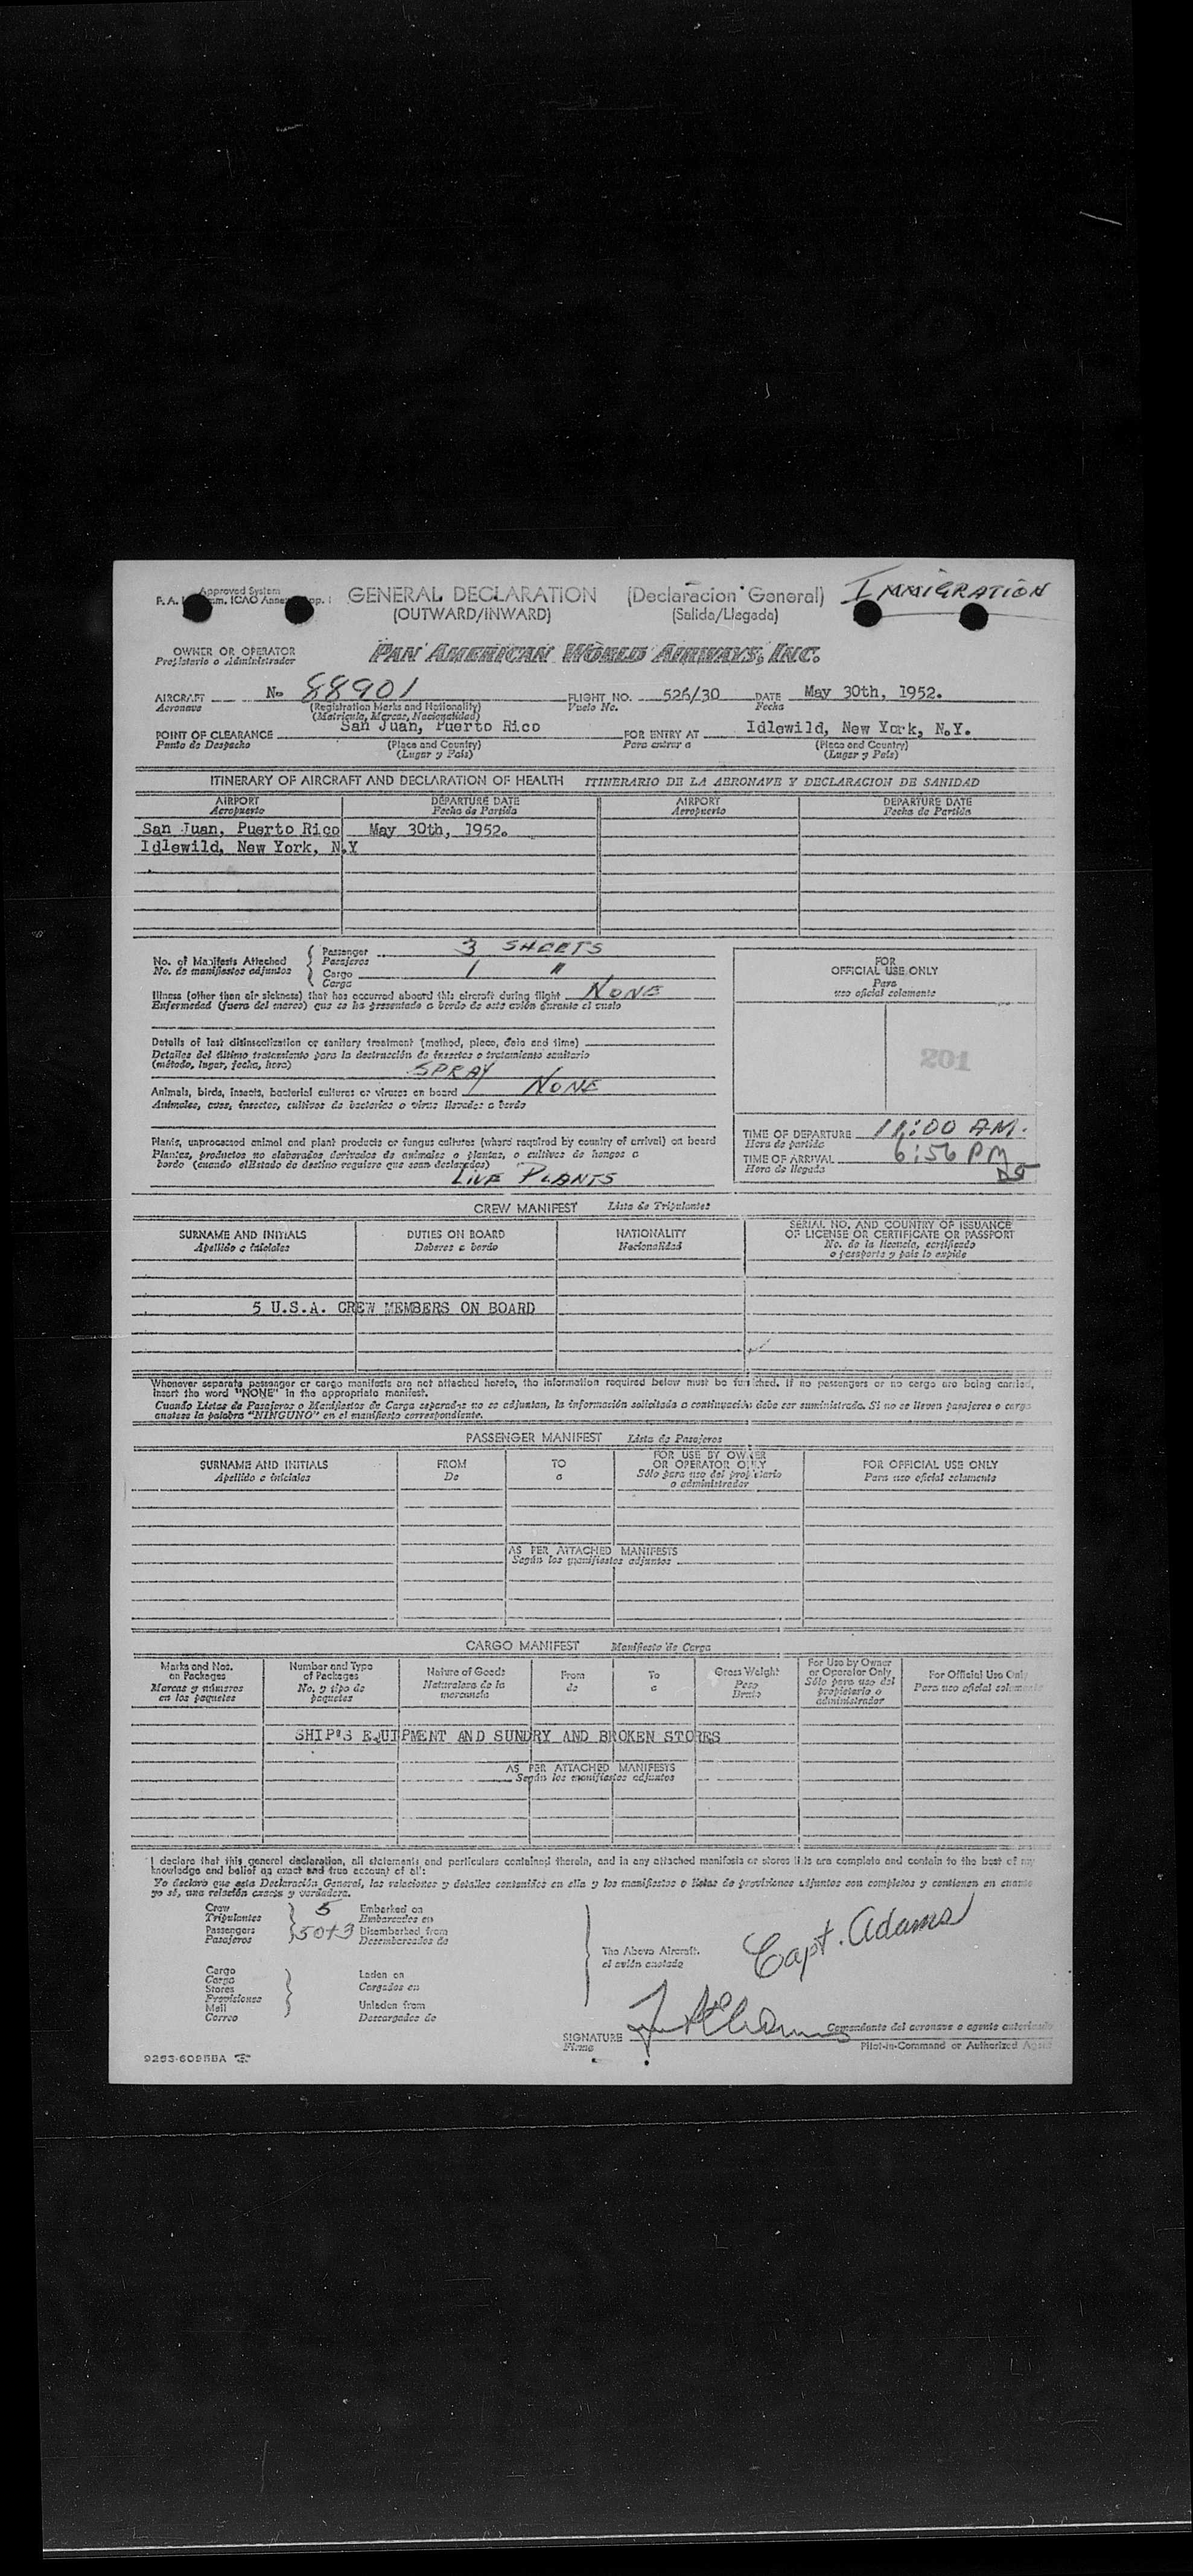 Approved System
GENERAL DECLARATION (Declaracion General) IMMIGRATION
(OUTWARD/INWARD) (Salida/Llegada)
OWNER OR OPERATOR PAN AMERICAN WORLD AIRWAYS, INC.
Propietario o Administrador
AIRCRAFT No 88901 FLIGHT NO. 526/30 DATE May 30th, 1952.
Aeronave (Registration Marks and Nationality) Vuelo No. Fecha
(Matricula, Marcas, Nacionalidad)
POINT OF CLEARANCE San Juan, Puerto Rico FOR ENTRY AT Idlewild, New York, N.Y.
Punto de Despacho (Place and Country) Para entrar a (Place and Country)
(Lugar y País) (Lugar y País)
ITINERARY OF AIRCRAFT AND DECLARATION OF HEALTH ITINERARIO DE LA AERONAVE Y DECLARACION DE SANIDAD
AIRPORT DEPARTURE DATE AIRPORT DEPARTURE DATE
Aeropuerto Fecha de Partida Aeropuerto Fecha de Partida
San Juan, Puerto Rico May 30th, 1952.
Idlewild, New York, N.Y
No. of Manifests Attached Passenger 3 SHEETS
No. de manifiestos adjuntos Pasajeros
Cargo 1 "
Carga
Illness (other than air sickness) that has occurred aboard this aircraft during flight NONE
Enfermedad (fuera del mareo) que se ha presentado a bordo de este avión durante el vuelo
Details of last disinsectization or sanitary treatment (method, place, date and time)
Detalles del último tratamiento para la destrucción de insectos o tratamiento sanitario
(método, lugar, fecha, hora) SPRAY
Animals, birds, insects, bacterial cultures or viruses on board NONE
Animales, aves, insectos, cultivos de bacterias o virus llevados a bordo
Plants, unprocessed animal and plant products or fungus cultures (where required by country of arrival) on board
Plantas, productos no elaborados, derivados de animales o plantas, o cultivos de hongos a
bordo (cuando el Estado de destino requiere que sean declarados)
LIVE PLANTS
FOR
OFFICIAL USE ONLY
Para
uso oficial solamente
201
TIME OF DEPARTURE 11:00 AM.
Hora de partida
TIME OF ARRIVAL 6:56 PM
Hora de llegada DST
CREW MANIFEST Lista de Tripulantes
SURNAME AND INITIALS DUTIES ON BOARD NATIONALITY SERIAL NO. AND COUNTRY OF ISSUANCE
OF LICENSE OR CERTIFICATE OR PASSPORT
Apellido e iniciales Deberes a bordo Nacionalidad No. de la licencia, certificado
o pasaporte y país lo expide
5 U.S.A. CREW MEMBERS ON BOARD
Whenever separate passenger or cargo manifests are not attached hereto, the information required below must be furnished. If no passengers or no cargo are being carried,
insert the word "NONE" in the appropriate manifest.
Cuando Listas de Pasajeros o Manifiestos de Carga separadas no se adjuntan, la información solicitada a continuación debe ser suministrada. Si no se lleven pasajeros o carga
anotese la palabra "NINGUNO" en el manifiesto correspondiente.
PASSENGER MANIFEST Lista de Pasajeros
SURNAME AND INITIALS FROM TO FOR USE BY OWNER OR OPERATOR ONLY FOR OFFICIAL USE ONLY
Apellido e iniciales De a Sólo para uso del propietario o administrador Para uso oficial solamente
AS PER ATTACHED MANIFESTS
Según los manifiestos adjuntos
CARGO MANIFEST Manifiesto de Carga
Marks and Nos. on Packages Number and Type of Packages Nature of Goods From To Gross Weight For Use by Owner or Operator Only For Official Use Only
Marcas y números en los paquetes No. y tipo de paquetes Naturaleza de la mercancía de a Peso Bruto Sólo para uso del propietario o administrador Para uso oficial solamente
SHIP'S EQUIPMENT AND SUNDRY AND BROKEN STORES
AS PER ATTACHED MANIFESTS
Según los manifiestos adjuntos
I declare that this general declaration, all statements and particulars contained therein, and in any attached manifests or stores lists are complete and contain to the best of my
knowledge and belief an exact and true account of all:
Yo declaro que esta Declaración General, las relaciones y detalles contenidos en ella y los manifiestos o listas de provisiones adjuntos son completos y contienen en cuanto
yo sé, una relación exacta y verdadera.
Crew 5 Embarked on
Tripulantes Embarcados en
Passengers 50+3 Disembarked from
Pasajeros Desembarcados de
The Above Aircraft.
el avión anotado
Capt. Adams
Cargo Laden on
Carga Cargados en
Stores
Provisiones
Mail Unladen from
Correo Descargados de
SIGNATURE Comandante del aeronave o agente autorizado
Firma Pilot-in-Command or Authorized Agent